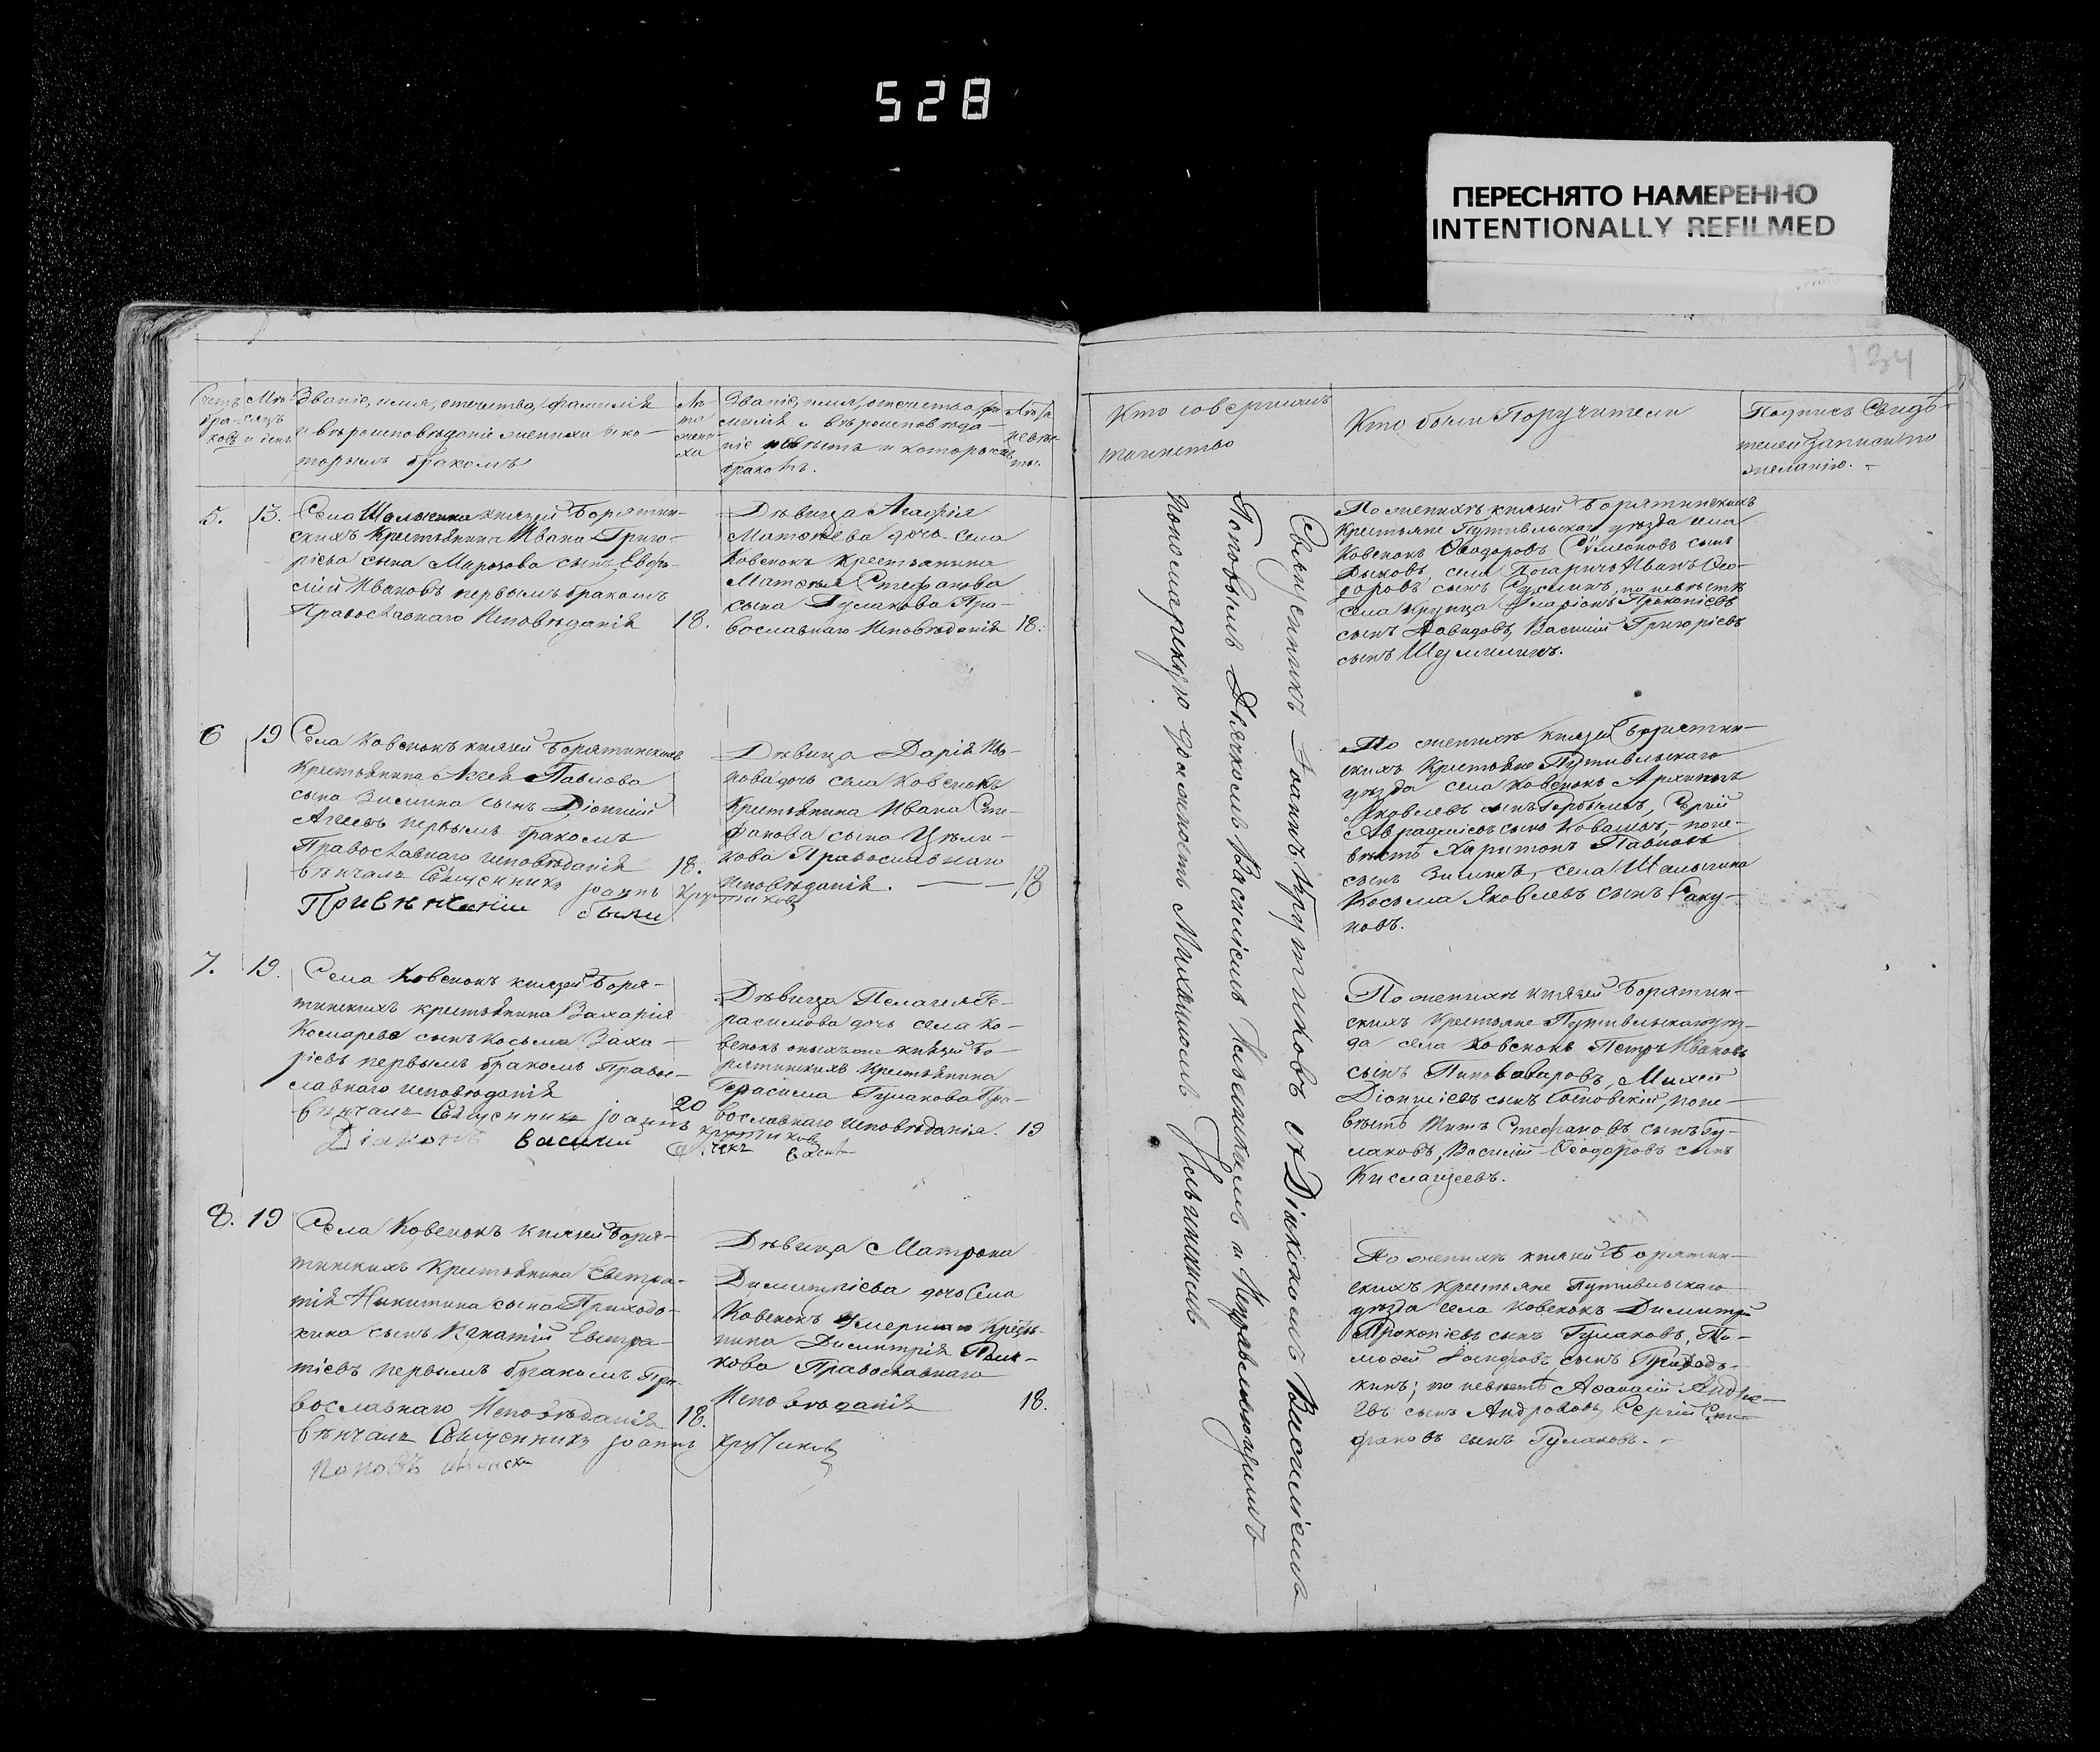 528
ПЕРЕСНЯТО НАМЕРЕННО
INTENTIONALLY REFILMED
134
Счетъ бра-ковъ
Мѣ-сяцъ и день
Званіе, имя, отечество, фамилія
и вѣроисповѣданіе жениха и ко-
торымъ бракомъ
Лѣ-та жени-ха
Званіе, имя, отечество, фа-
милія и вѣроисповѣда-
ніе невѣсты и которымъ
бракомъ.
Лѣта невѣс-ты.
5. 13.
Села Шалыгина князей Борятин-
скихъ Крестьянина Ивана Григо-
рієва сына Морозова сынъ Евфи-
мій Ивановъ первымъ бракомъ
Православнаго Исповѣданія 18.
Дѣвица Агафія
Матѳеева дочь села
Ковенокъ Крестьянина
Матѳея Стефанова
сына Гулакова Пра-
вославнаго Исповѣданія 18.
6 19
Села Ковенокъ князей Борятинскихъ
Крестьянина Аггея Павлова
сына Зимина сынъ Діонисій
Аггеевъ первымъ бракомъ
Православнаго исповѣданія 18.
Вѣнчалъ Священникъ Іоаннъ Крутиковъ
При вѣнчаніи были
Дѣвица Дарія Ива-
нова дочь села Ковенокъ
Крестьянина Ивана Сте-
фанова сына
Православнаго
исповѣданія. — 18
7. 19.
Села Ковенокъ князей Боря-
тинскихъ крестьянина Захарія
Комарева сынъ Косьма Заха-
рієвъ первымъ бракомъ Право-
славнаго исповѣданія 20
Вѣнчалъ Священникъ Іоаннъ Крутиковъ
Діаконъ Василій
Дѣвица Пелагея Ге-
расимова дочь села Ко-
венокъ князей Бо-
рятинскихъ Крестьянина
Герасима Гулакова Пра-
вославнаго исповѣданія. 19
8. 19
Села Ковенокъ князей Боря-
тинскихъ Крестьянина Евстра-
тія Никитина сына Приходь-
кина сынъ Евстра-
тієвъ первымъ бракомъ Пра-
вославнаго Исповѣданія 18.
Вѣнчалъ Священникъ Іоаннъ Крутиковъ
Дѣвица Матрона
Димитрієва дочь Села
Ковенокъ Кресть-
нина Димитрія
Православнаго
Исповѣданія 18.
Кто совершалъ
таинство
Священникъ Іоаннъ Крутиковъ съ Діакономъ Василіемъ
Поповымъ Дьячкомъ Василіемъ и Исправляющимъ
пономарскую должность Михаиломъ
Кто были Поручители
По женихѣ князей Борятинскихъ
Крестьяне Путивльскаго уѣзда села
Ковенокъ Ѳеодоровъ Симеоновъ сынъ
Иванъ Ѳео-
доровъ сынъ по невѣстѣ
села Иларіонъ Прокопієвъ
сынъ Давидовъ, Василій Григорієвъ
сынъ
По женихѣ князей Борятин-
скихъ Крестьяне Путивльскаго
уѣзда села Ковенокъ Архиппъ
Яковлевъ сынъ Сергій
сынъ по не-
вѣстѣ Харитонъ Павловъ
сынъ Зиминъ, села Шалыгина
Косьма Яковлевъ сынъ Саку-
новъ.
По женихѣ князей Борятин-
скихъ Крестьяне Путивльскаго уѣз-
да села Ковенокъ Петръ Ивановъ
сынъ Пивоваровъ, Михей
Діонисієвъ сынъ по не-
вѣстѣ Титъ Стефановъ сынъ Гу-
лаковъ, Василій Ѳеодоровъ сынъ
По женихѣ князей Борятин-
скихъ Крестьяне Путивльскаго
уѣзда села Ковенокъ Димитрій
Прокопієвъ сынъ Гулаковъ, Ти-
моѳей сынъ Приходь-
кинъ; по невѣстѣ Аѳанасій Андре-
евъ сынъ Сергій Сте-
фановъ сынъ Гулаковъ.
Подпись Свидѣ-
телей записи по
желанію.